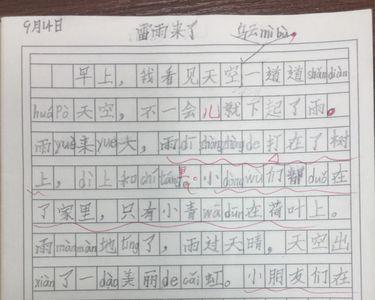 9月14日 雷雨来了 乌云mì bù,
早上,我看见天空一道道shǎn diàn
huá Pò天空,不一会儿就下起了雨。
雨yuè来yuè大,雨dī zhòng zhòng de打在了树
上,dì上和chí táng里。小dòng wù们都duǒ在
了家里,只有小青wā dūn在荷叶上。
雨màn màn地tíng了,雨过天晴,天空出
xiàn了一dào美丽de cǎi虹。小朋友们在